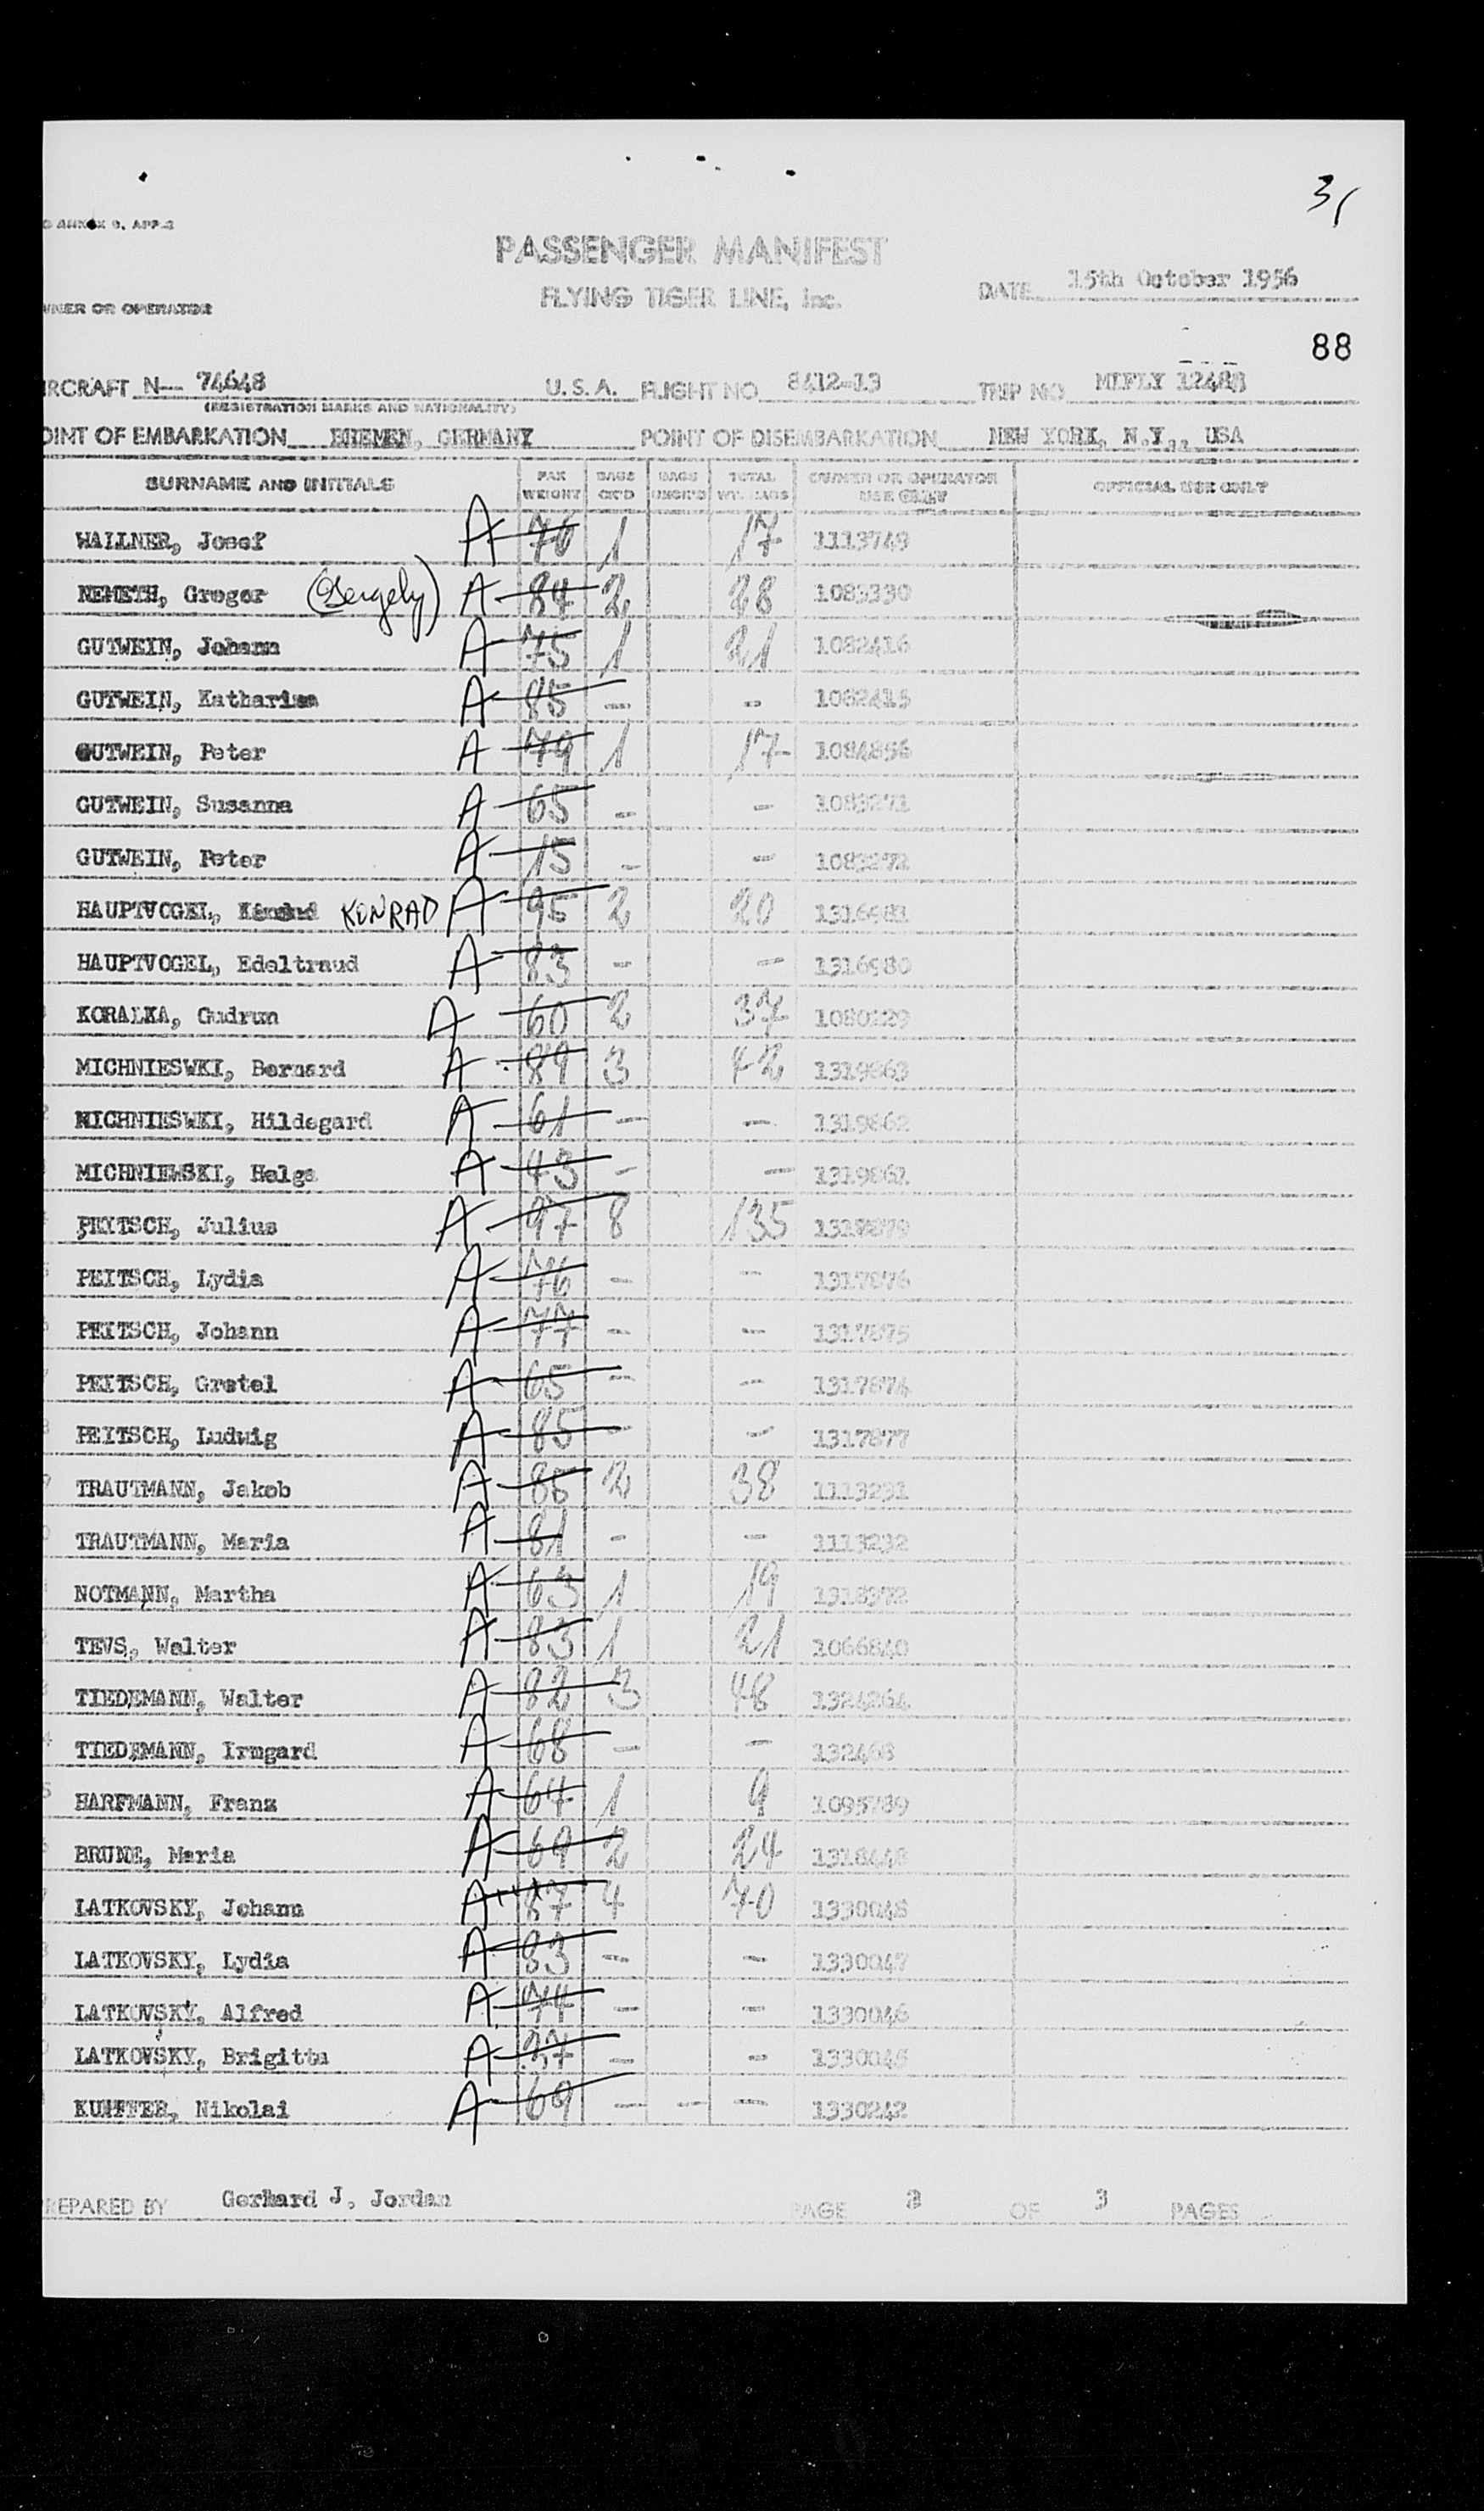 31
ANNEX 9, APP-2
PASSENGER MANIFEST
FLYING TIGER LINE, Inc.
DATE 15th October 1956
WNER OR OPERATOR
88
IRCRAFT N— 74648 U.S.A. FLIGHT NO 8412-13 TRIP NO MIFLY 12488
(REGISTRATION MARKS AND NATIONALITY)
OINT OF EMBARKATION BREMEN, GERMANY POINT OF DISEMBARKATION NEW YORK, N.Y., USA
SURNAME AND INITIALS PAX WEIGHT BAGS CK'D BAGS UNCK'D TOTAL WT. BAGS OWNER OR OPERATOR USE ONLY OFFICIAL USE ONLY
WALLNER, Josef A 76 1 17 1113749
NEMETH, Gregor (Gergely) A 84 2 28 1083330
GUTWEIN, Johann A 75 1 21 1082416
GUTWEIN, Katharina A 85 - - 1082415
GUTWEIN, Peter A 79 1 17 1084856
GUTWEIN, Susanna A 65 - - 1083271
GUTWEIN, Peter A 15 - - 1083272
HAUPTVOGEL, KONRAD A 95 2 20 1316981
HAUPTVOGEL, Edeltraud A 83 - - 1316980
KORALKA, Gudrun A 60 2 37 1080229
MICHNIESWKI, Bernard A 89 3 42 1319863
MICHNIESWKI, Hildegard A 61 - - 1319862
MICHNIEWSKI, Helga A 43 - - 1319861
PEITSCH, Julius A 97 8 135 1318879
PEITSCH, Lydia A 76 - - 1317876
PEITSCH, Johann A 77 - - 1317875
PEITSCH, Gretel A 65 - - 1317874
PEITSCH, Ludwig A 85 - - 1317877
TRAUTMANN, Jakob A 86 2 38 1113231
TRAUTMANN, Maria A 81 - - 1113232
NOTMANN, Martha A 63 1 19 1318372
TEVS, Walter A 83 1 21 1066840
TIEDEMANN, Walter A 82 3 48 1324264
TIEDEMANN, Irmgard A 68 - - 132468
HARFMANN, Franz A 64 1 9 1095789
BRUNE, Maria A 69 2 24 1318448
LATKOVSKY, Johann A 87 4 70 1330048
LATKOVSKY, Lydia A 83 - - 1330047
LATKOVSKY, Alfred A 74 - - 1330046
LATKOVSKY, Brigitta A 37 - - 1330045
KUPFFER, Nikolai A 69 - - - 1330242
REPARED BY Gerhard J. Jordan PAGE 2 OF 3 PAGES